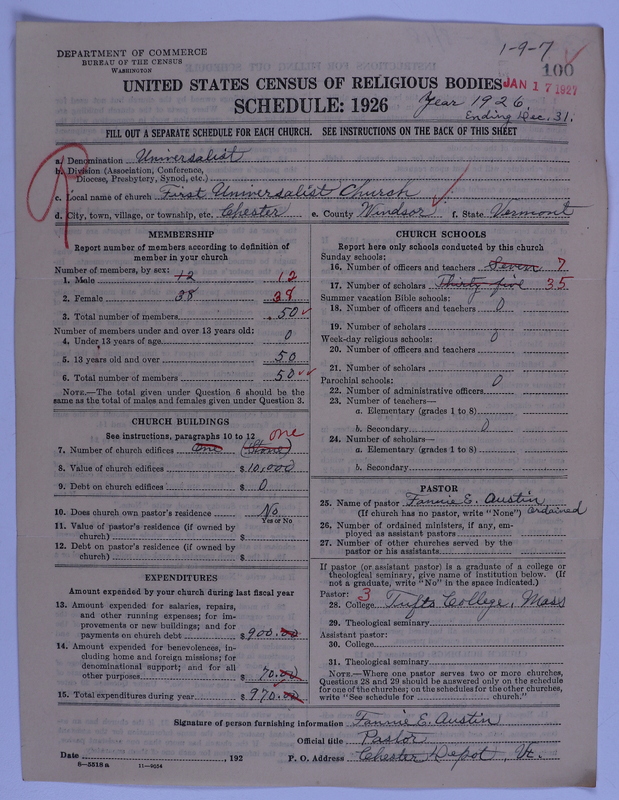 DEPARTMENT OF COMMERCE
BUREAU OF THE CENSUS
WASHINGTON
1-9-7
100
UNITED STATES CENSUS OF RELIGIOUS BODIES
JAN 17 1927
SCHEDULE: 1926
Year 1926
Ending Dec. 31.
FILL OUT A SEPARATE SCHEDULE FOR EACH CHURCH. SEE INSTRUCTIONS ON THE BACK OF THIS SHEET
a. Denomination Universalist
b. Division (Association, Conference, Diocese, Presbytery, Synod, etc.)
c. Local name of church First Universalist Church
d. City, town, village, or township, etc. Chester e. County Windsor f. State Vermont
MEMBERSHIP
Report number of members according to definition of member in your church
Number of members, by sex:
1. Male 12 12
2. Female 38 38
3. Total number of members 50
Number of members under and over 13 years old:
4. Under 13 years of age 0
5. 13 years old and over 50
6. Total number of members 50
NOTE.—The total given under Question 6 should be the same as the total of males and females given under Question 3.
CHURCH BUILDINGS
See instructions, paragraphs 10 to 12 one
7. Number of church edifices one (Stone)
8. Value of church edifices $ 10,000
9. Debt on church edifices $ 0
10. Does church own pastor's residence No
Yes or No
11. Value of pastor's residence (if owned by church) $
12. Debt on pastor's residence (if owned by church) $
EXPENDITURES
Amount expended by your church during last fiscal year
13. Amount expended for salaries, repairs, and other running expenses; for improvements or new buildings; and for payments on church debt $ 900.00
14. Amount expended for benevolences, including home and foreign missions; for denominational support; and for all other purposes $ 70.00
15. Total expenditures during year $ 970.00
CHURCH SCHOOLS
Report here only schools conducted by this church
Sunday schools:
16. Number of officers and teachers Seven 7
17. Number of scholars Thirty five 35
Summer vacation Bible schools:
18. Number of officers and teachers 0
19. Number of scholars
Week-day religious schools: 0
20. Number of officers and teachers
21. Number of scholars
Parochial schools: 0
22. Number of administrative officers
23. Number of teachers—
a. Elementary (grades 1 to 8)
b. Secondary 0
24. Number of scholars—
a. Elementary (grades 1 to 8)
b. Secondary
PASTOR
25. Name of pastor Fannie E. Austin
(If church has no pastor, write "None") Ordained
26. Number of ordained ministers, if any, employed as assistant pastors
27. Number of other churches served by the pastor or his assistants
If pastor (or assistant pastor) is a graduate of a college or theological seminary, give name of institution below. (If not a graduate, write "No" in the space indicated.)
Pastor: 3
28. College Tufts College, Mass
29. Theological seminary
Assistant pastor:
30. College
31. Theological seminary
NOTE.—Where one pastor serves two or more churches, Questions 28 and 29 should be answered only on the schedule for one of the churches; on the schedules for the other churches, write "See schedule for church."
Signature of person furnishing information Fannie E. Austin
Official title Pastor
Date , 192 P. O. Address Chester Depot, Vt.
8—5518 a 11—9054